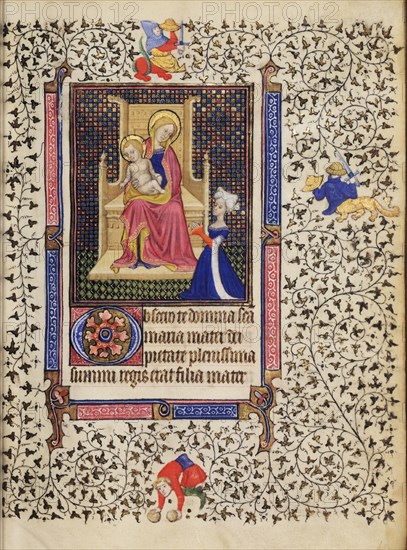 Obsecro te domina sca
maria mater dei
pietate plenissima
summi regis etat filia mater
PHOTO 12